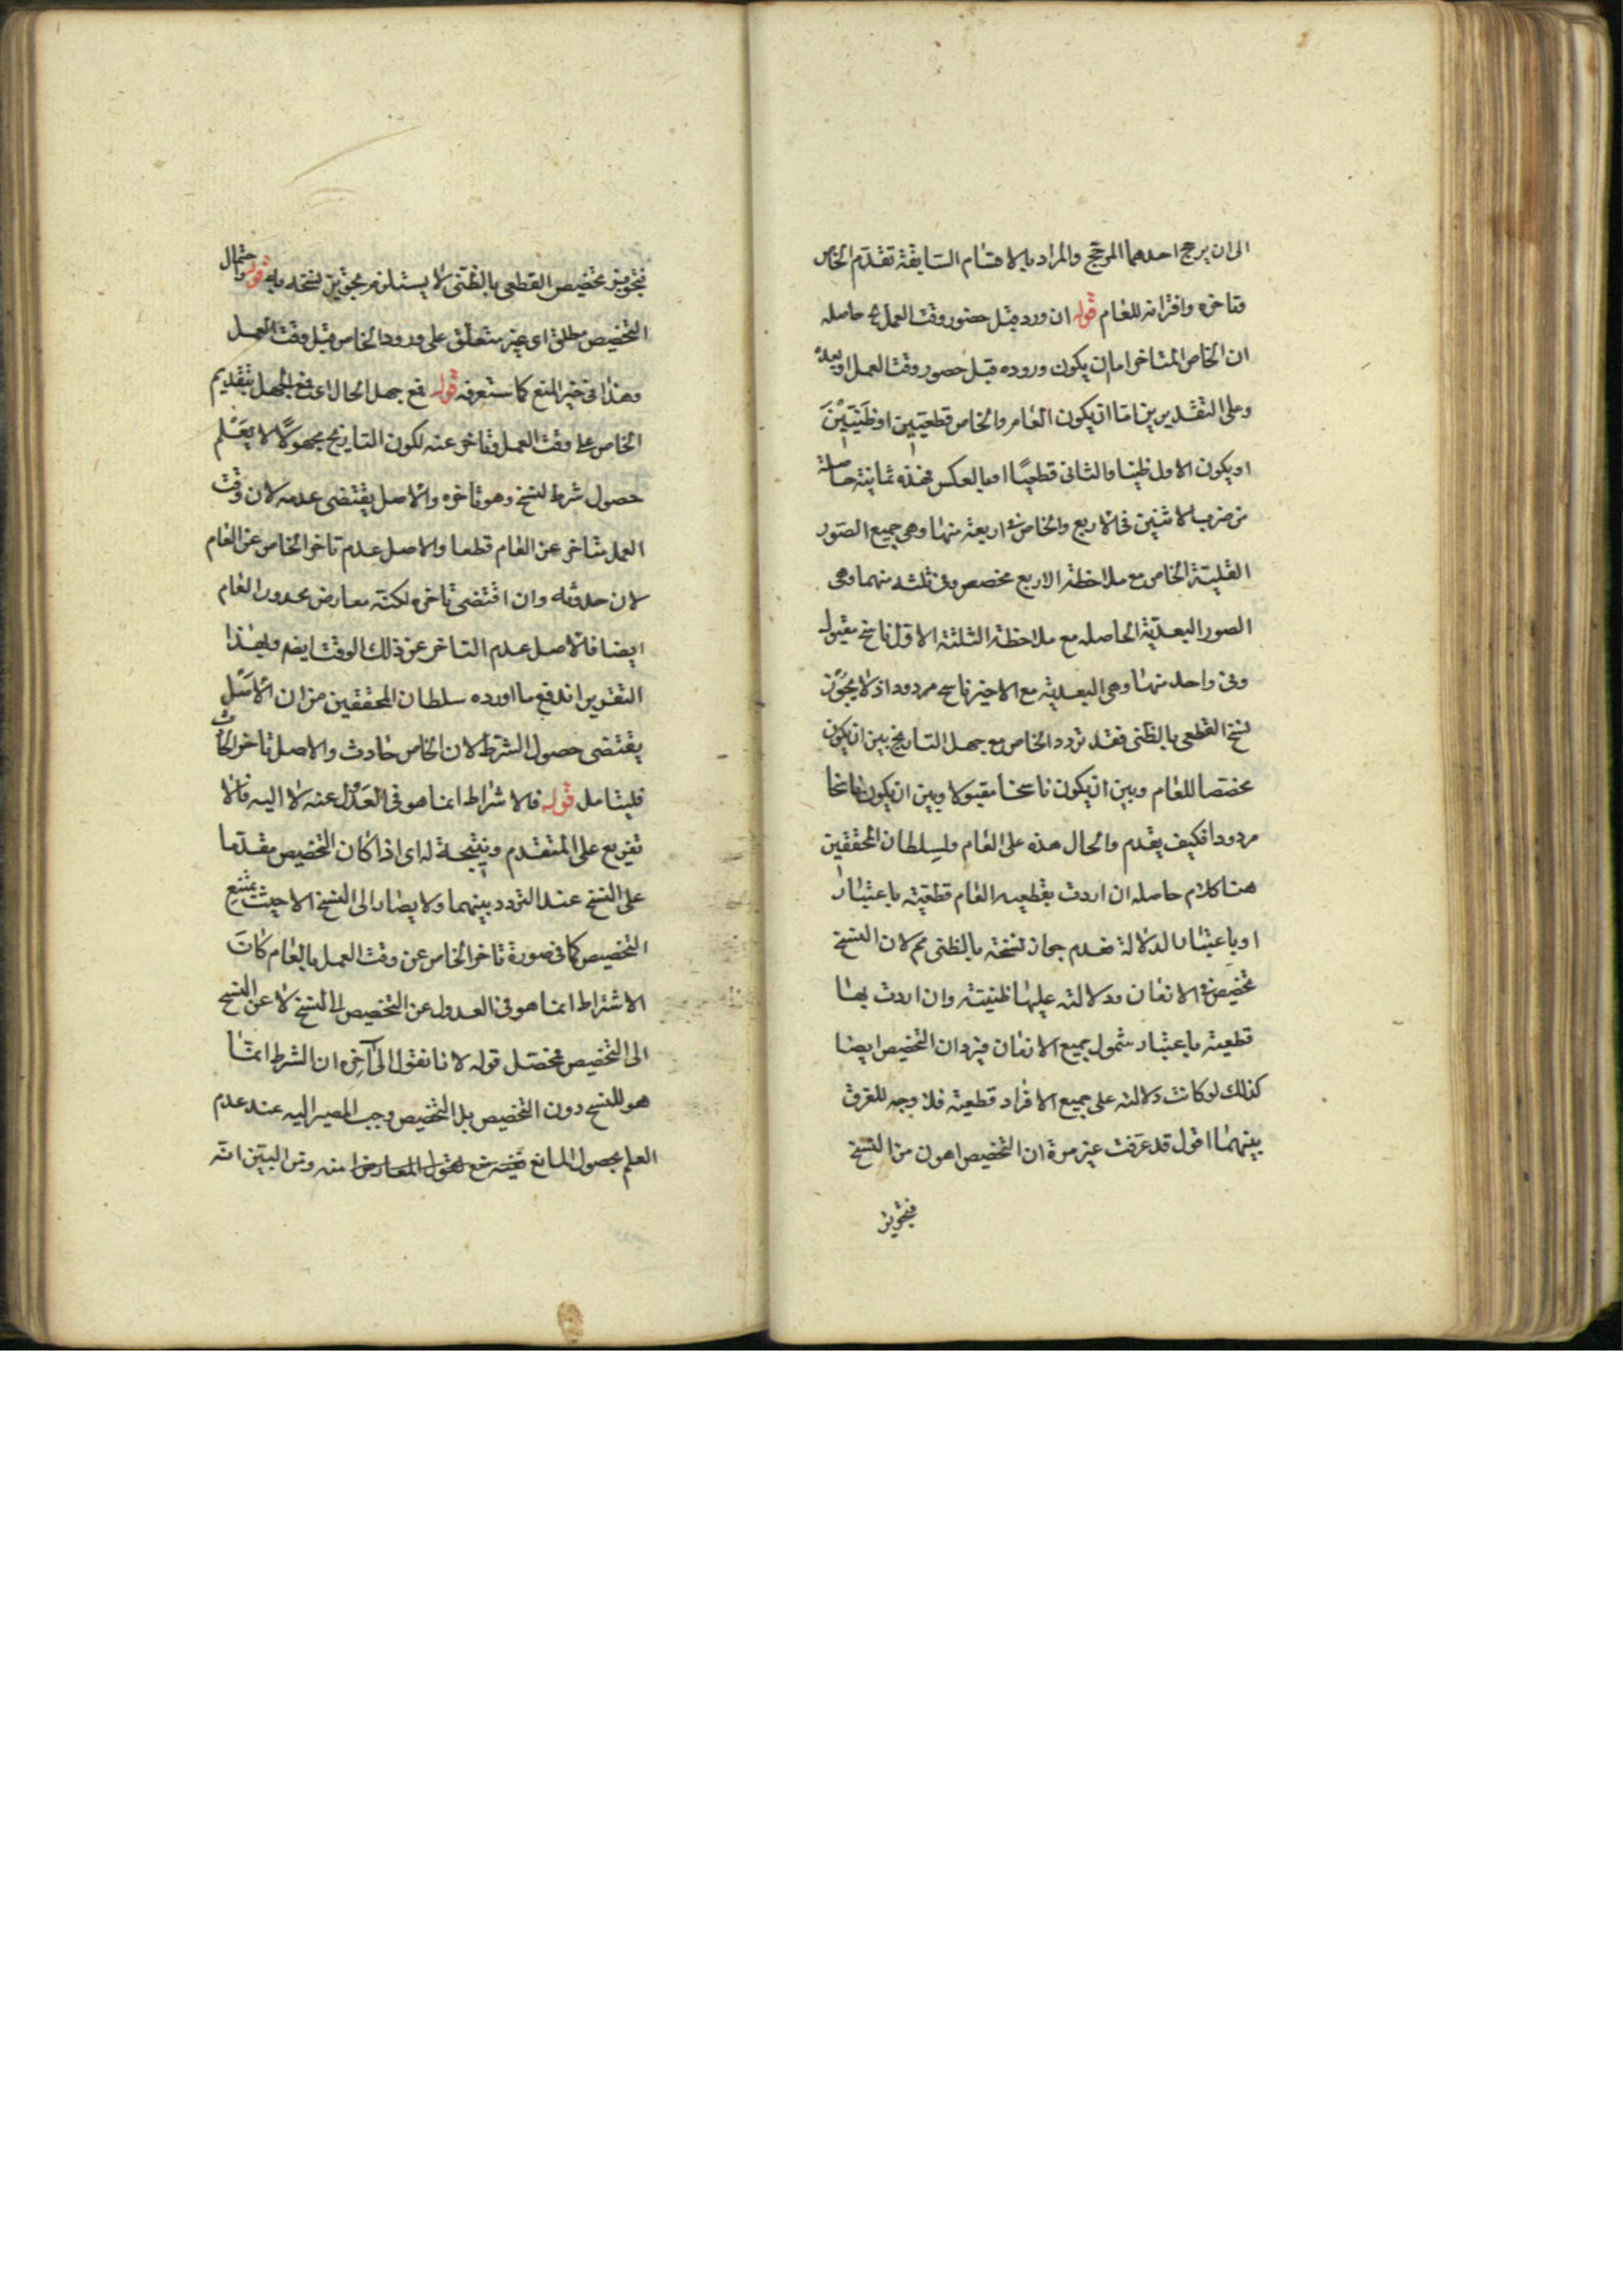 الى ان يرجح احدهما المرجح والمراد بالاقسام السابقة تقدم الخاص
وتاخره واقترانه للعام قوله ان ورد قبل حضور وقت العمل به حاصله
ان الخاص المتاخر اما ان يكون وروده قبل حضور وقت العمل او بعده
وعلى التقديرين اما ان يكون العام والخاص قطعيين او ظنيين
او يكون الاول ظنيا والثانى قطعيا او بالعكس فهذه ثمانية حاصلة
من ضرب الاثنين فى الاربع والخاص فى اربعة منها وهى جميع الصور
القبلية الخاص مع ملاحظة الاربع مخصص وفى ثلثه منهما وهى
الصور البعدية الحاصله مع ملاحظة الثلثة الاول ناسخ مقبول
وفى واحد منها وهى البعدية مع الاخير ناسخ مردود اذ لا يجوز
نسخ القطعى بالظنى فقد تردد الخاص مع جهل التاريخ بين ان يكون
مخصصا للعام وبين ان يكون ناسخا مقبولا وبين ان يكون ناسخا
مردودا فكيف يقدم والحال هذه على العام ولسلطان المحققين
هنا كلام حاصله ان اردت بقطعيه العام قطعيته باعتبار
او باعتبار الدلالة فعدم جواز نسخه بالظنى مم لان النسخ
تخصيص فى الازمان ودلالته عليها ظنيته وان اردت بها
قطعيته باعتبار شمول جميع الازمان فيرد ان التخصيص ايضا
كذلك لو كانت دلالته على جميع الافراد قطعيته فلا وجه للفرق
بينهما اقول قد عرفت غير مرة ان التخصيص اهون من النسخ
فتجويز
فتجويز تخصيص القطعى بالظنى لا يستلزم تجويز نسخه به قوله واحتمال
التخصيص مطلق اى غير متعلق على ورود الخاص قبل وقت العمل
وهذا فى خير المنع كما ستعرفه قوله فمع جهل الحال اى مع الجهل بتقديم
الخاص على وقت العمل وتاخره عنه لكون التاريخ مجهولا لا يعلم
حصول شرط النسخ وهو تاخره والاصل يقتضى عدمه لان وقت
العمل متاخر عن العام قطعا والاصل عدم تاخر الخاص عن العام
لان حدوثه وان اقتضى تاخره لكنه معارض بحدوث العام
ايضا فالاصل عدم التاخر عن ذلك الوقت ايضم وبهذا
التقرير اندفع ما اورده سلطان المحققين من ان الاصل
يقتضى حصول الشرط لان الخاص حادث والاصل تاخر الحادث
فليتامل قوله فالاشتراط انما هو فى العدول عنه لا اليه فانه لا
تفريع على المتقدم ونتيجة له اى اذا كان التخصيص مقدما
على النسخ عند التردد بينهما ولا يصار الى النسخ الا حيث يمتنع
التخصيص كما فى صورة تاخر الخاص عن وقت العمل بالعام كان
الاشتراط انما هو فى العدول عن التخصيص الى النسخ لا عن النسخ
الى التخصيص فمحصل قوله لانا نقول الى آخره ان الشرط انما
هو للنسخ دون التخصيص بل التخصيص وجب المصير اليه عند عدم
العلم بحصول المانع منه ومن البين انه